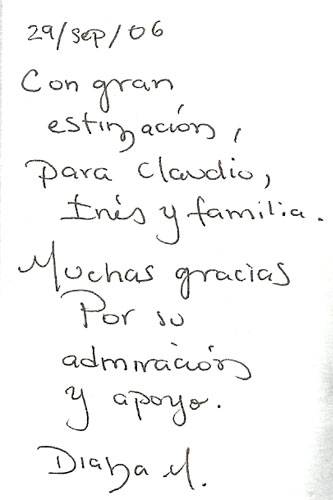 29/sep/06
Con gran
estimación,
para Claudio,
Inés y familia.
Muchas gracias
Por su
admiración
y apoyo.
Diana M.